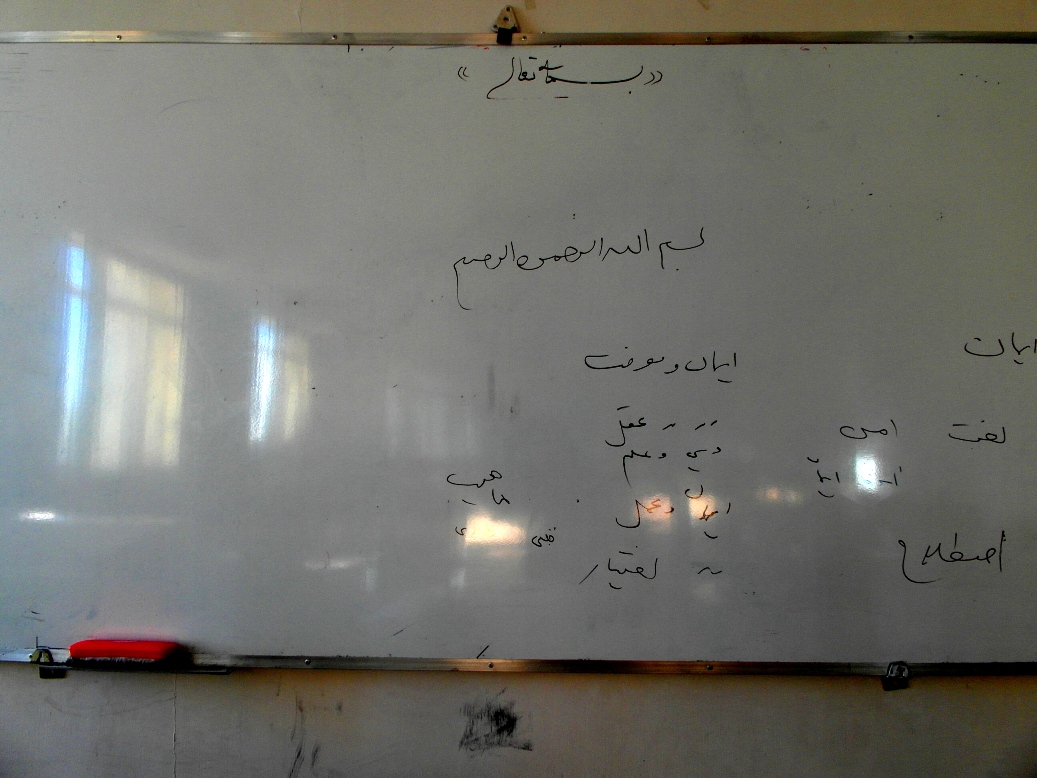 «بسمه تعالی»
بسم الله الرحمن الرحیم
ایمان
ایمان و معرفت
لغت امن
〃 〃 عقل
دین و علم
ماهیت
ایمان و عمل
قلبی
اصطلاح
〃 اختیار